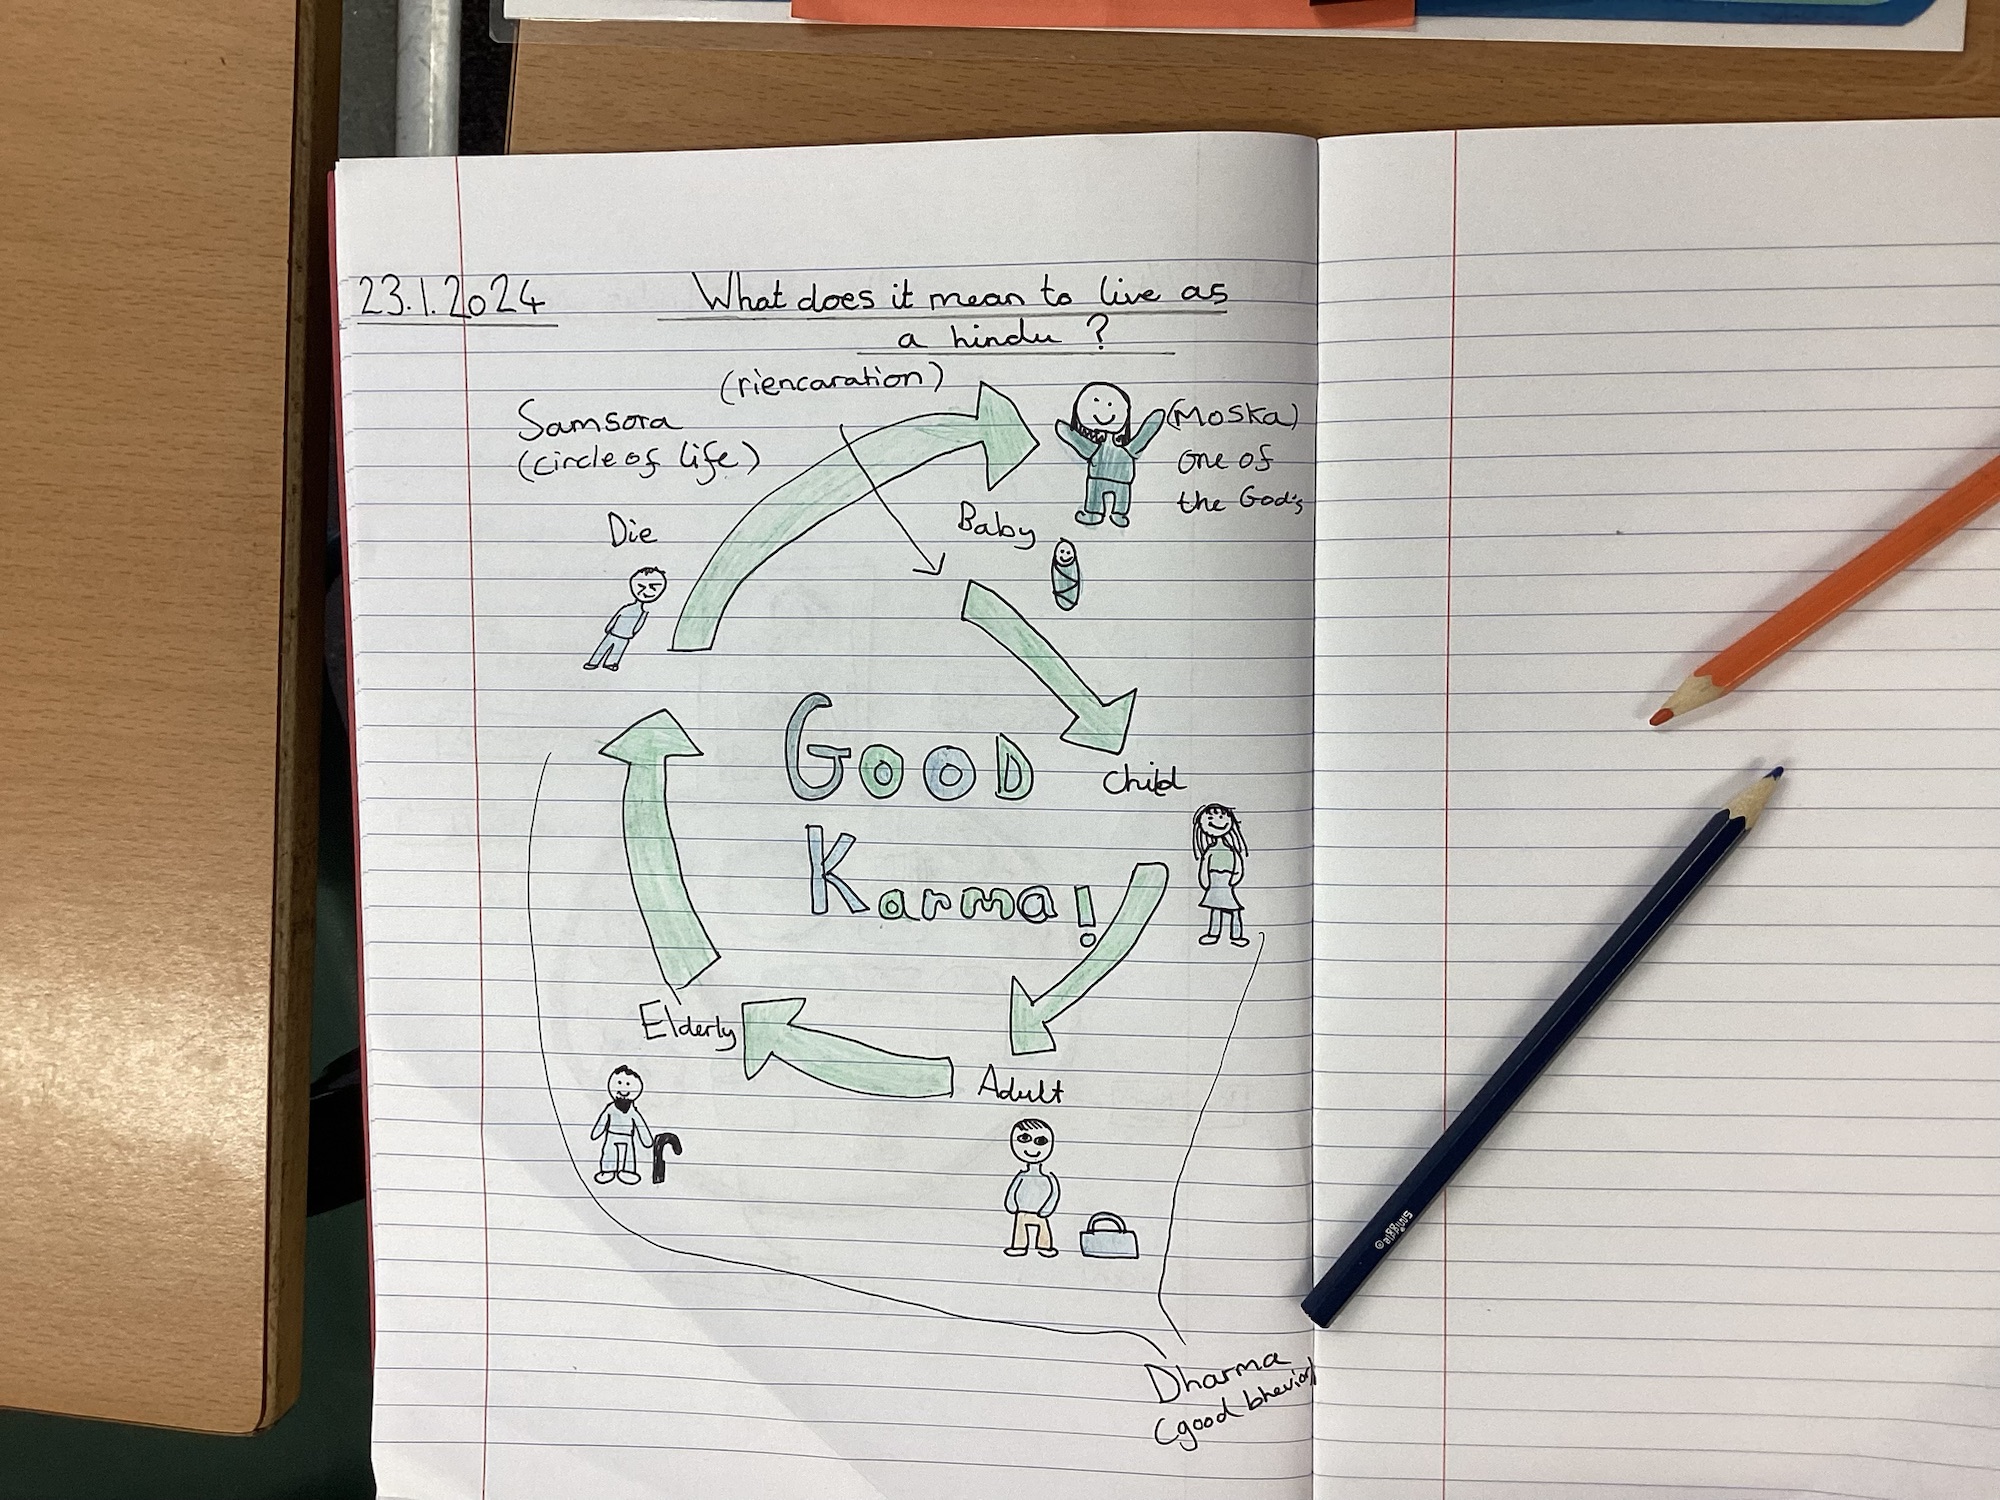 23.1.2024
What does it mean to live as
a hindu ?
(riencaration)
Samsora
(circle of life)
(Moska)
one of
the God's
Die
Baby
Good
Karma!
Child
Elderly
Adult
Dharma
(good bhevior)